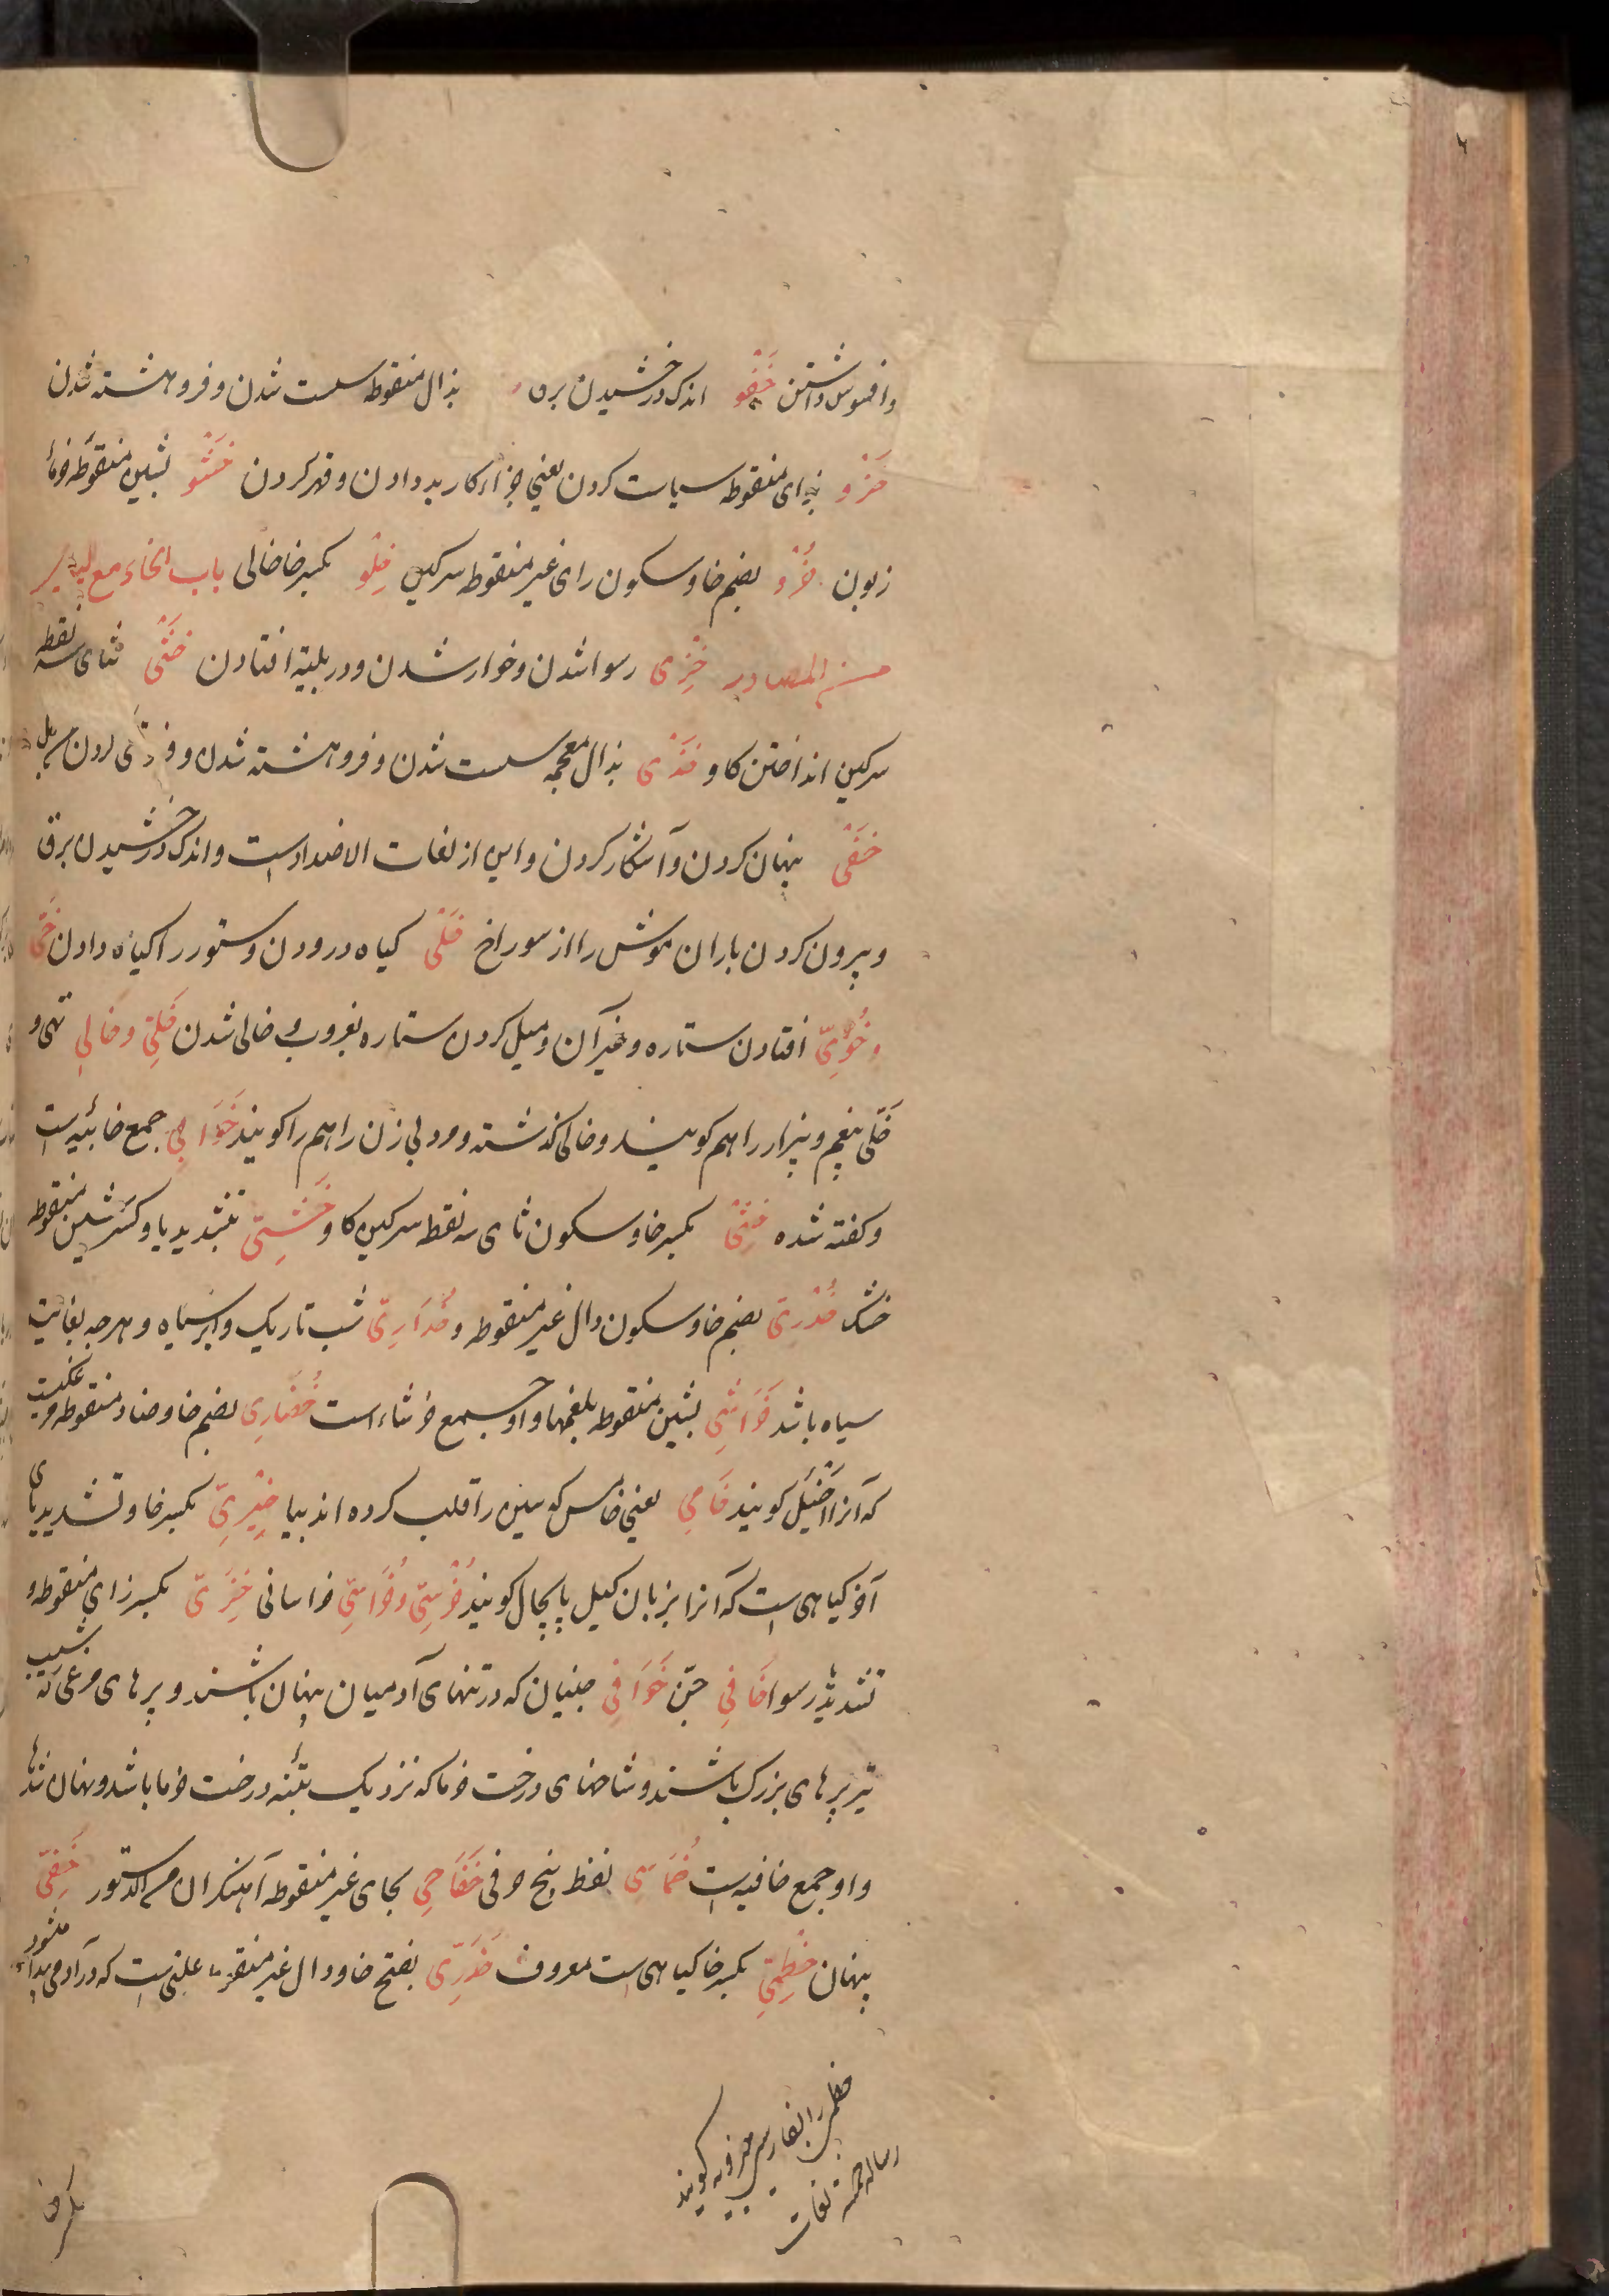 وافسوس داشتن خَفْو اندک درخشیدن برق بذال منقوطه سست شدن و فروهشته شدن
خَزْو بزای منقوطه سیاست کردن یعنی جزاء کار بد دادن و قهر کردن خَشْو بشین منقوطه خرمای
زبون خُرْو بضم خا و سکون رای غیر منقوطه سرکین خِلْو بکسر خا خالی باب الخاء مع الیاء
من المصادر خِزْی رسوا شدن و خوار شدن و در بلیّه افتادن خَثْی ثنای سه نقطه
سرکین انداختن کاو خَذْی بذال معجمه سست شدن و فروهشته شدن
خَفْی پنهان کردن و آشکار کردن و این از لغات الاضداد است و اندک درخشیدن برق
و بیرون کردن باران موش را از سوراخ خَلْی کیاه درودن و ستور را کیاه دادن خَیّ
و خُوِیّ افتادن ستاره و غیر آن و میل کردن ستاره بغروب و خالی شدن خَلِیّ و خالی تهی و
خَلِی بیغم و بیزار را هم کویند و خالی کذشته و مرد بی زن را هم را کویند خَوَابِی جمع خابئیه است
و کفته شده خِثْی بکسر خا و سکون ثای سه نقطه سرکین کاو خَشِیّ بتشدید یا و کسر شین منقوطه
خشک خُدْرِیّ بضم خا و سکون دال غیر منقوطه و خُدَارِیّ شب تاریک و ابر سیاه و هرچه بغایت
سیاه باشد خَرَاشِی بشین منقوطه بلغمها و او جمع خرشاء است خُضَارِی بضم خا و ضاد منقوطه مرغیست
که آنرا اَخْیَل کویند خَامِی یعنی خامس که سین را قلب کرده اند بیا خِیْرِیّ بکسر خا و تشدید یای
آخر کیاهی است که آنرا بزبان کیل پاپچال کویند خُرْسِیّ و خُرَاسِیّ خراسانی خَزِیّ بکسر زای منقوطه و
تشدید یا رسوا خَافِی جنّ خَوَافِی جنیان که در تنهای آدمیان پنهان باشند و پرهای مرغی که بشیب
تیر پرهای بزرک باشند و شاخهای درخت خرما که نزدیک بتنه درخت خرما باشد و نهان شدها
و او جمع خافیه است خُمَاسِی لفظ پنج حرفی خَفَاجِی بجای غیر منقوطه آهنکران من الدستور خَفِیّ
پنهان خِطْمِیّ بکسر خا کیاهی است معروف خَدَرِیّ بفتح خا و دال غیر منقوطه علتی است که در آدمی پیدا میشود
خطمی را بفارسی خیرو کویند
رساله خمسه لغات
بکرفا